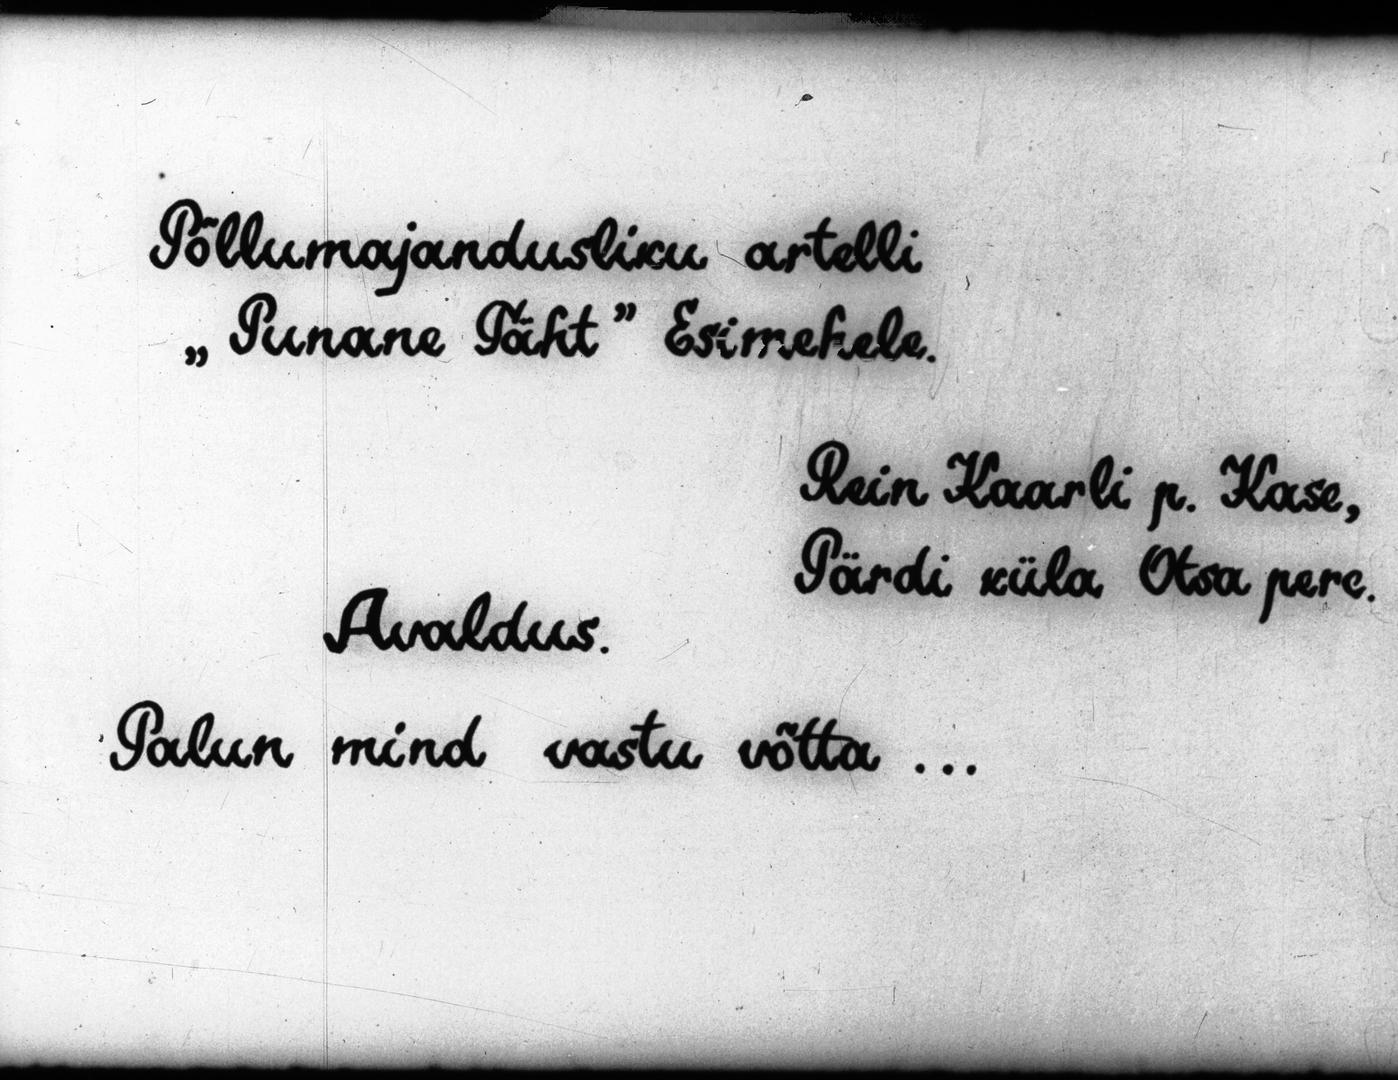 Põllumajandusliku artelli
„Punane Täht” Esimehele.
Rein Kaarli p. Kase,
Pärdi küla Otsa pere.
Avaldus.
Palun mind vastu võtta ...